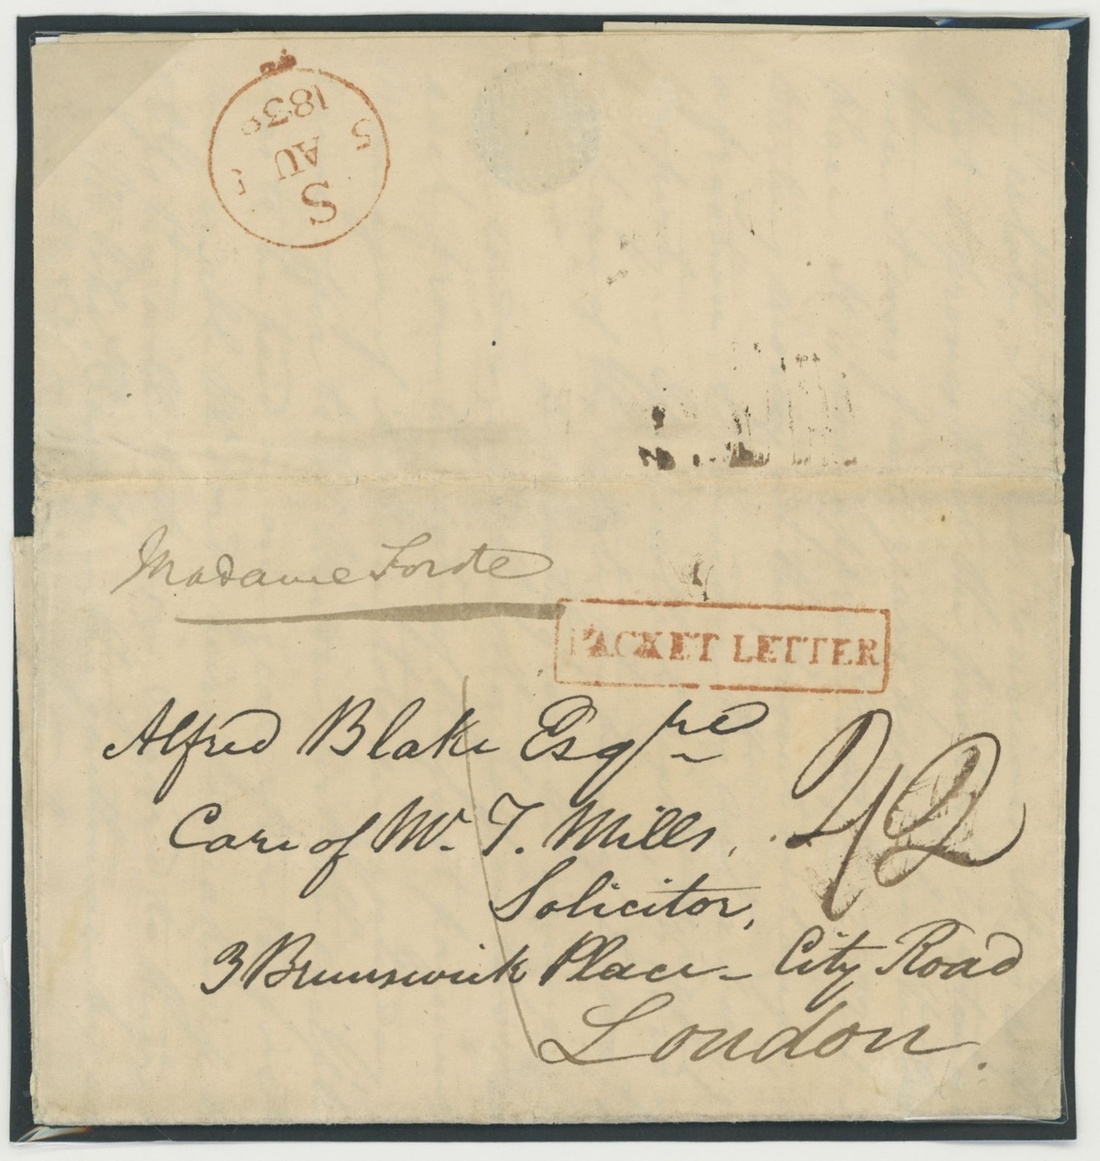 S
5
AU
1838
Madame Forste
PACKET LETTER
Alfred Blake Esqre
Care of Mr. T. Mills,
Solicitor,
3 Brunswick Place - City Road
London.